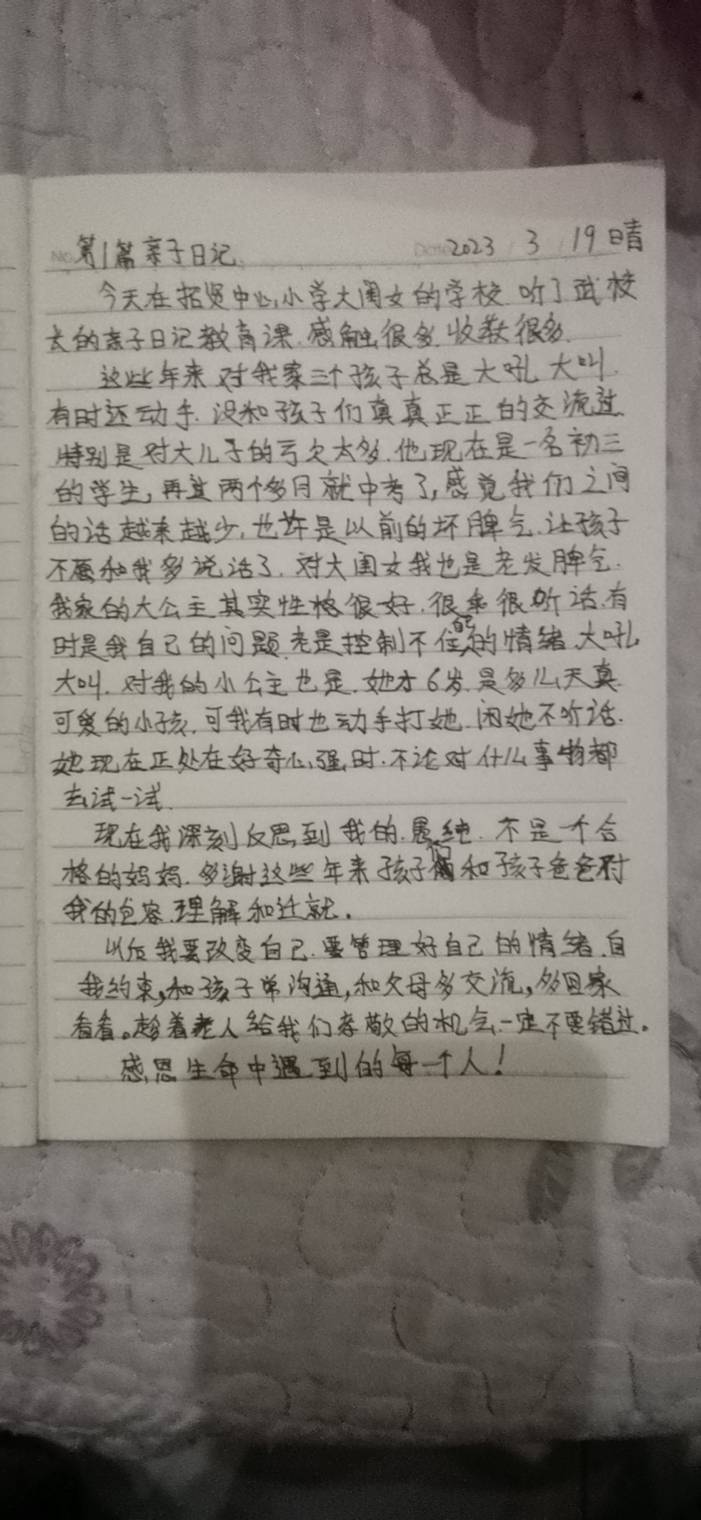 第1篇亲子日记 2023 3 19 晴
今天在招贤中心小学大闺女的学校.听了武校
长的亲子日记教育课.感触很多.收获很多.
这些年来对我家三个孩子总是大吼大叫.
有时还动手.没和孩子们真真正正的交流过
特别是对大儿子的亏欠太多.他现在是一名初三
的学生,再过两个多月就中考了,感觉我们之间
的话越来越少,也许是以前的坏脾气.让孩子
不愿和我多说话了.对大闺女我也是老发脾气.
我家的大公主其实性格很好.很乖很听话.有
时是我自己的问题.老是控制不住自己的情绪.大吼
大叫.对我的小公主也是.她才6岁.是多么天真
可爱的小孩.可我有时也动手打她.闲她不听话.
她现在正处在好奇心强时.不论对什么事物都
去试一试.
现在我深刻反思到我的.愚纯.不是一个合
格的妈妈.多谢这些年来孩子们和孩子爸爸对
我的包容.理解和迁就.
以后我要改变自己.要管理好自己的情绪.自
我约束,和孩子常沟通,和父母多交流,多回家
看看。趁着老人给我们孝敬的机会一定不要错过。
感恩生命中遇到的每一个人!